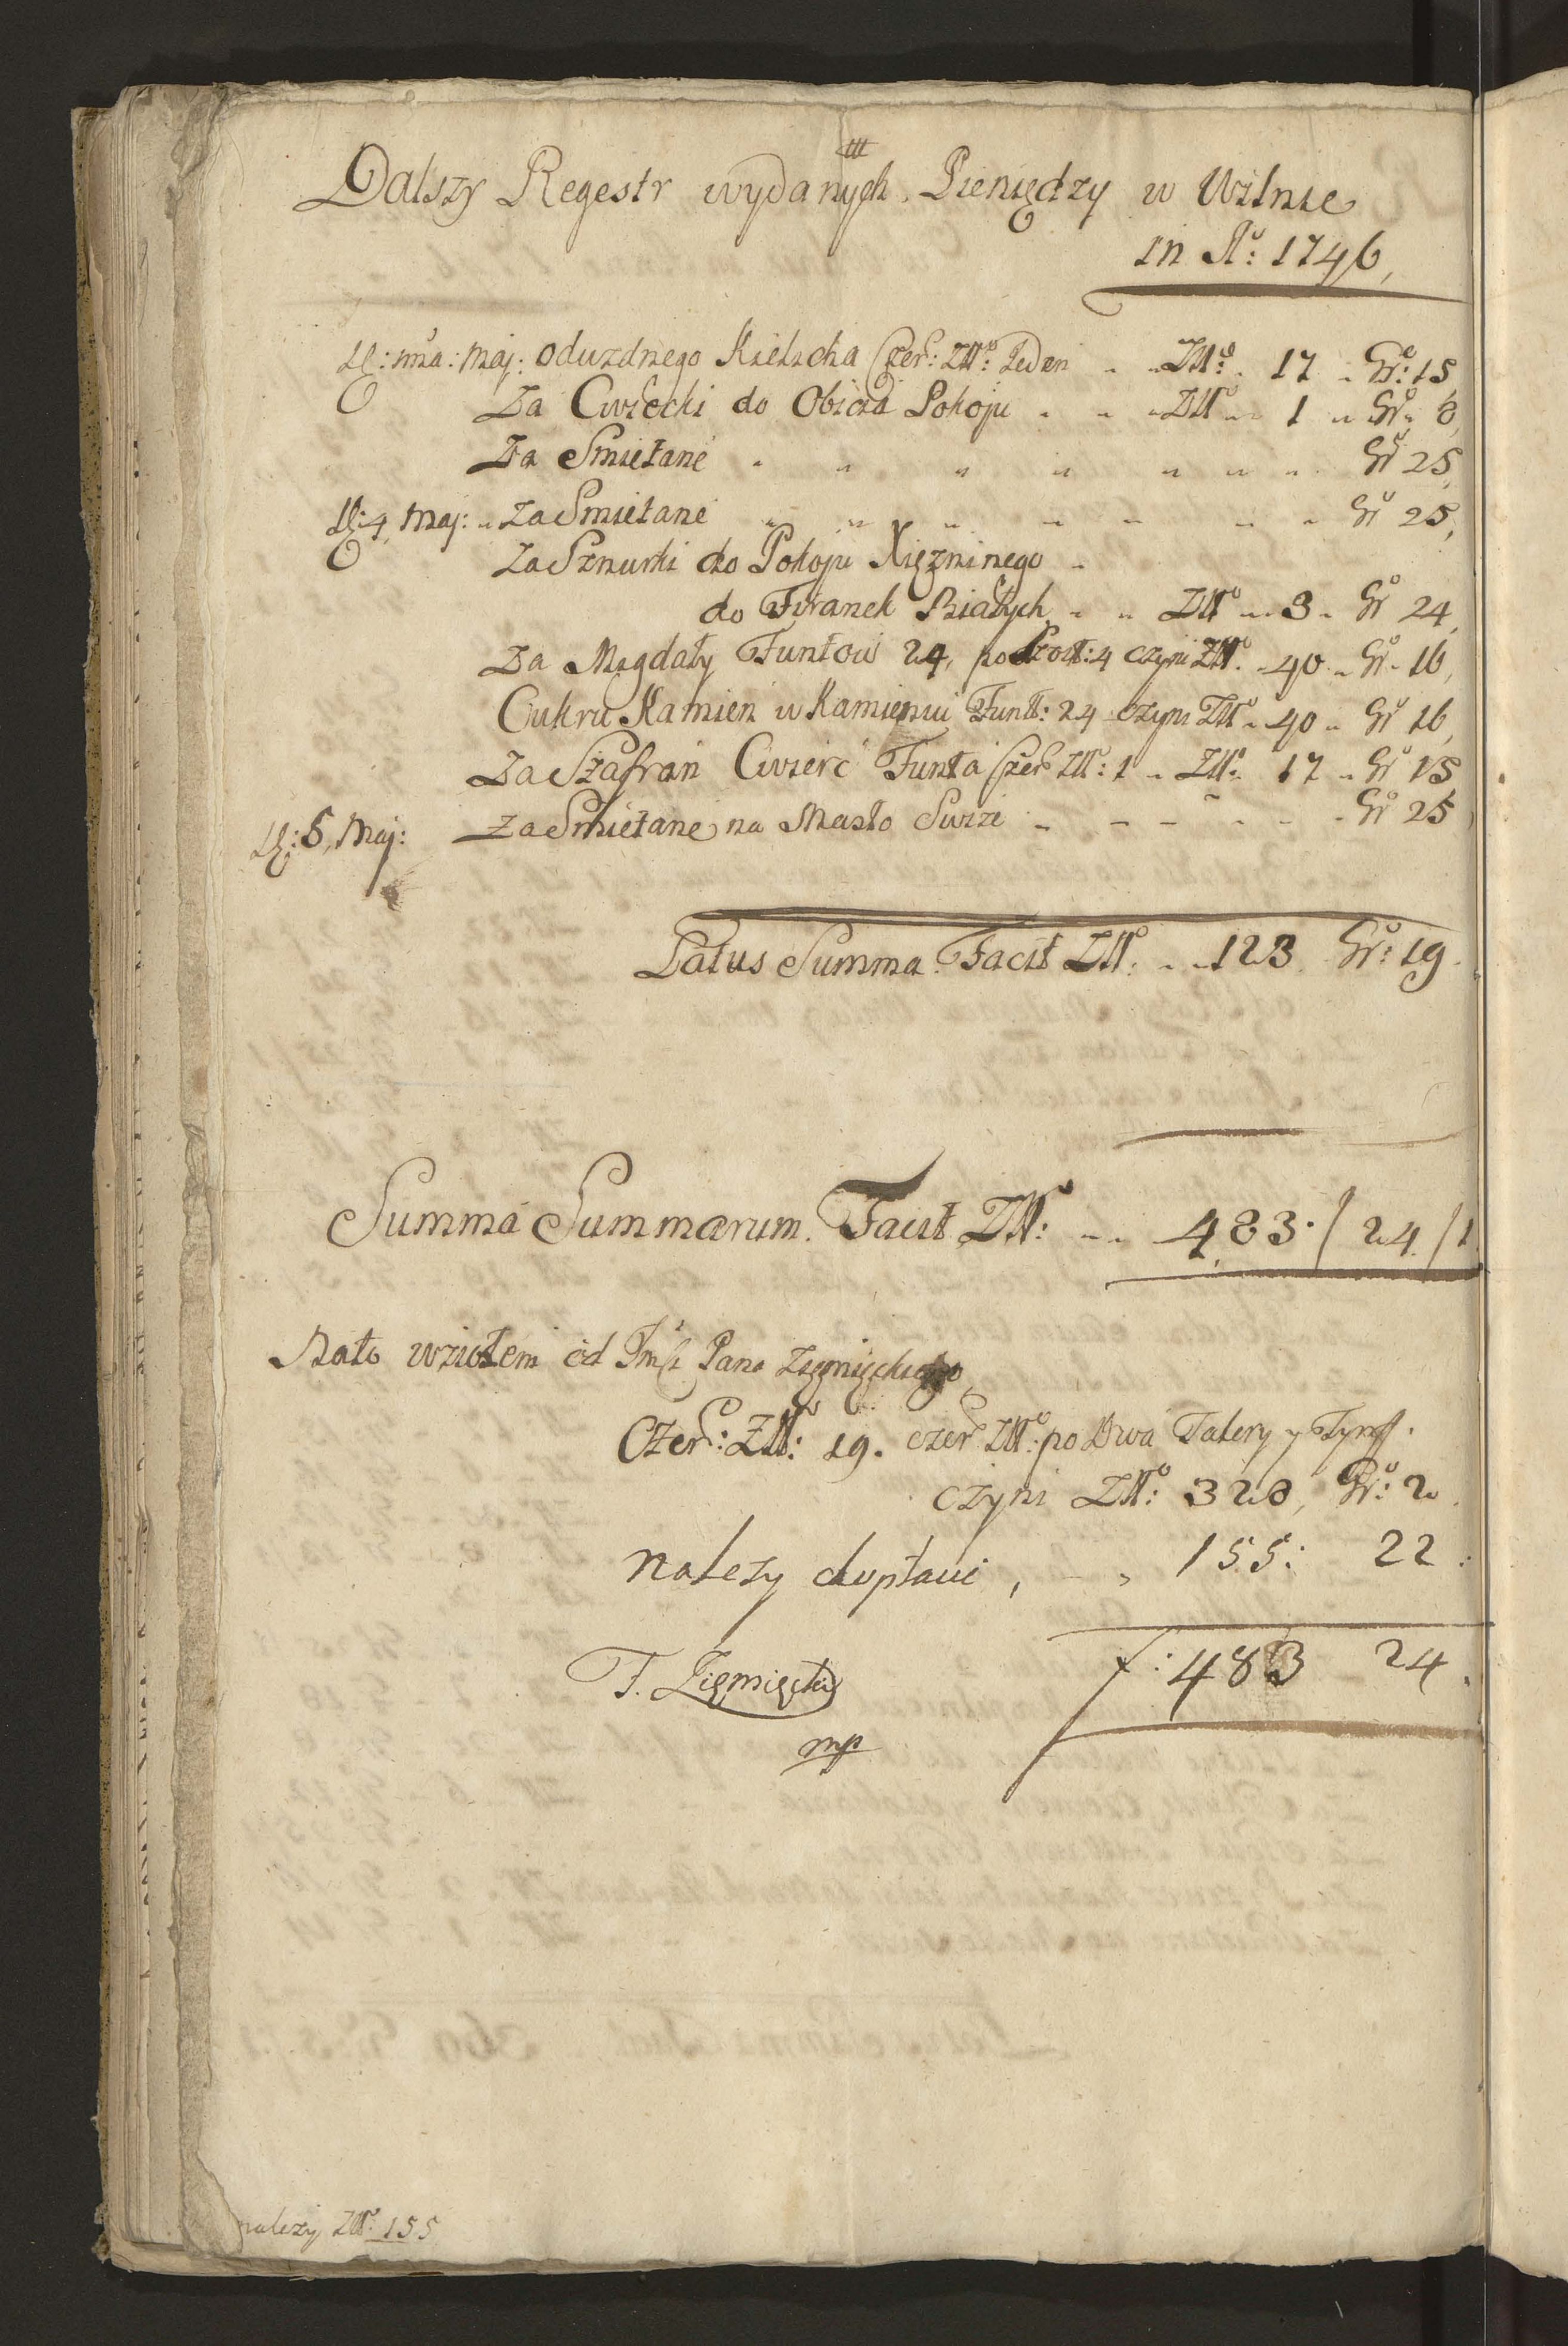 Dalszy Regestr wydanych Pieniędzy w Wilnie
in Aº: 1746,
D: ma: Maj: Od Kielicha Czer: Złł: Jeden Złł: 17 Gr: 15
Za Cwiecki do Obicia Pokoju Złł 1 Gr 8,
Za Smietanę Gr 25,
D: 4, Maj: Za Smietanę Gr 25,
Za Sznurki do Pokoju Xiężninego
do Firanek Białych Złł 3 Gr 24,
Za Megdały Funtow 24, po Szost: 4 czyni Złł: 40 Gr 16,
Cukru Kamień w Kamieniu Funt: 24 czyni Złł 40 Gr 16,
Za Szafran Cwierć Funta Czer Złł: 1 Złł: 17 Gr 15
D: 5, Maj: Za Smietanę na Masło Gr 25
Latus Summa Facit Złł: 123 Gr: 19.
Summa Summarum. Facit Złł: 483. / 24. / 1
Nato wziołem od Jmści Pana Zięmięckiego
Czer: Złł: 19. czer Złł: po Dwa Talery y Tynff.
czyni Złł: 328, Gr: 2.
należy dopłacić, 155: 22:
f: 483 24.
F. Zięmięcki
mp
należy Złł: 155